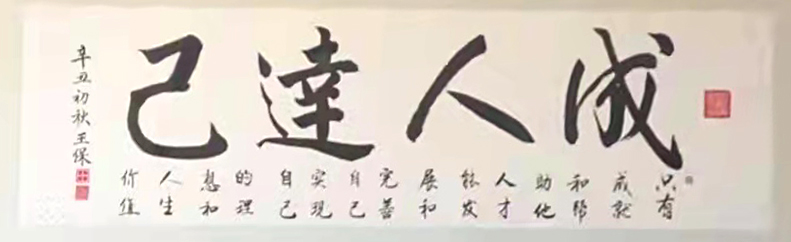 成人達己
只有
成就
和帮
助他
人才
能发
展和
完善
自己
实现
自己
的理
想和
人生
价值
辛丑初秋王保